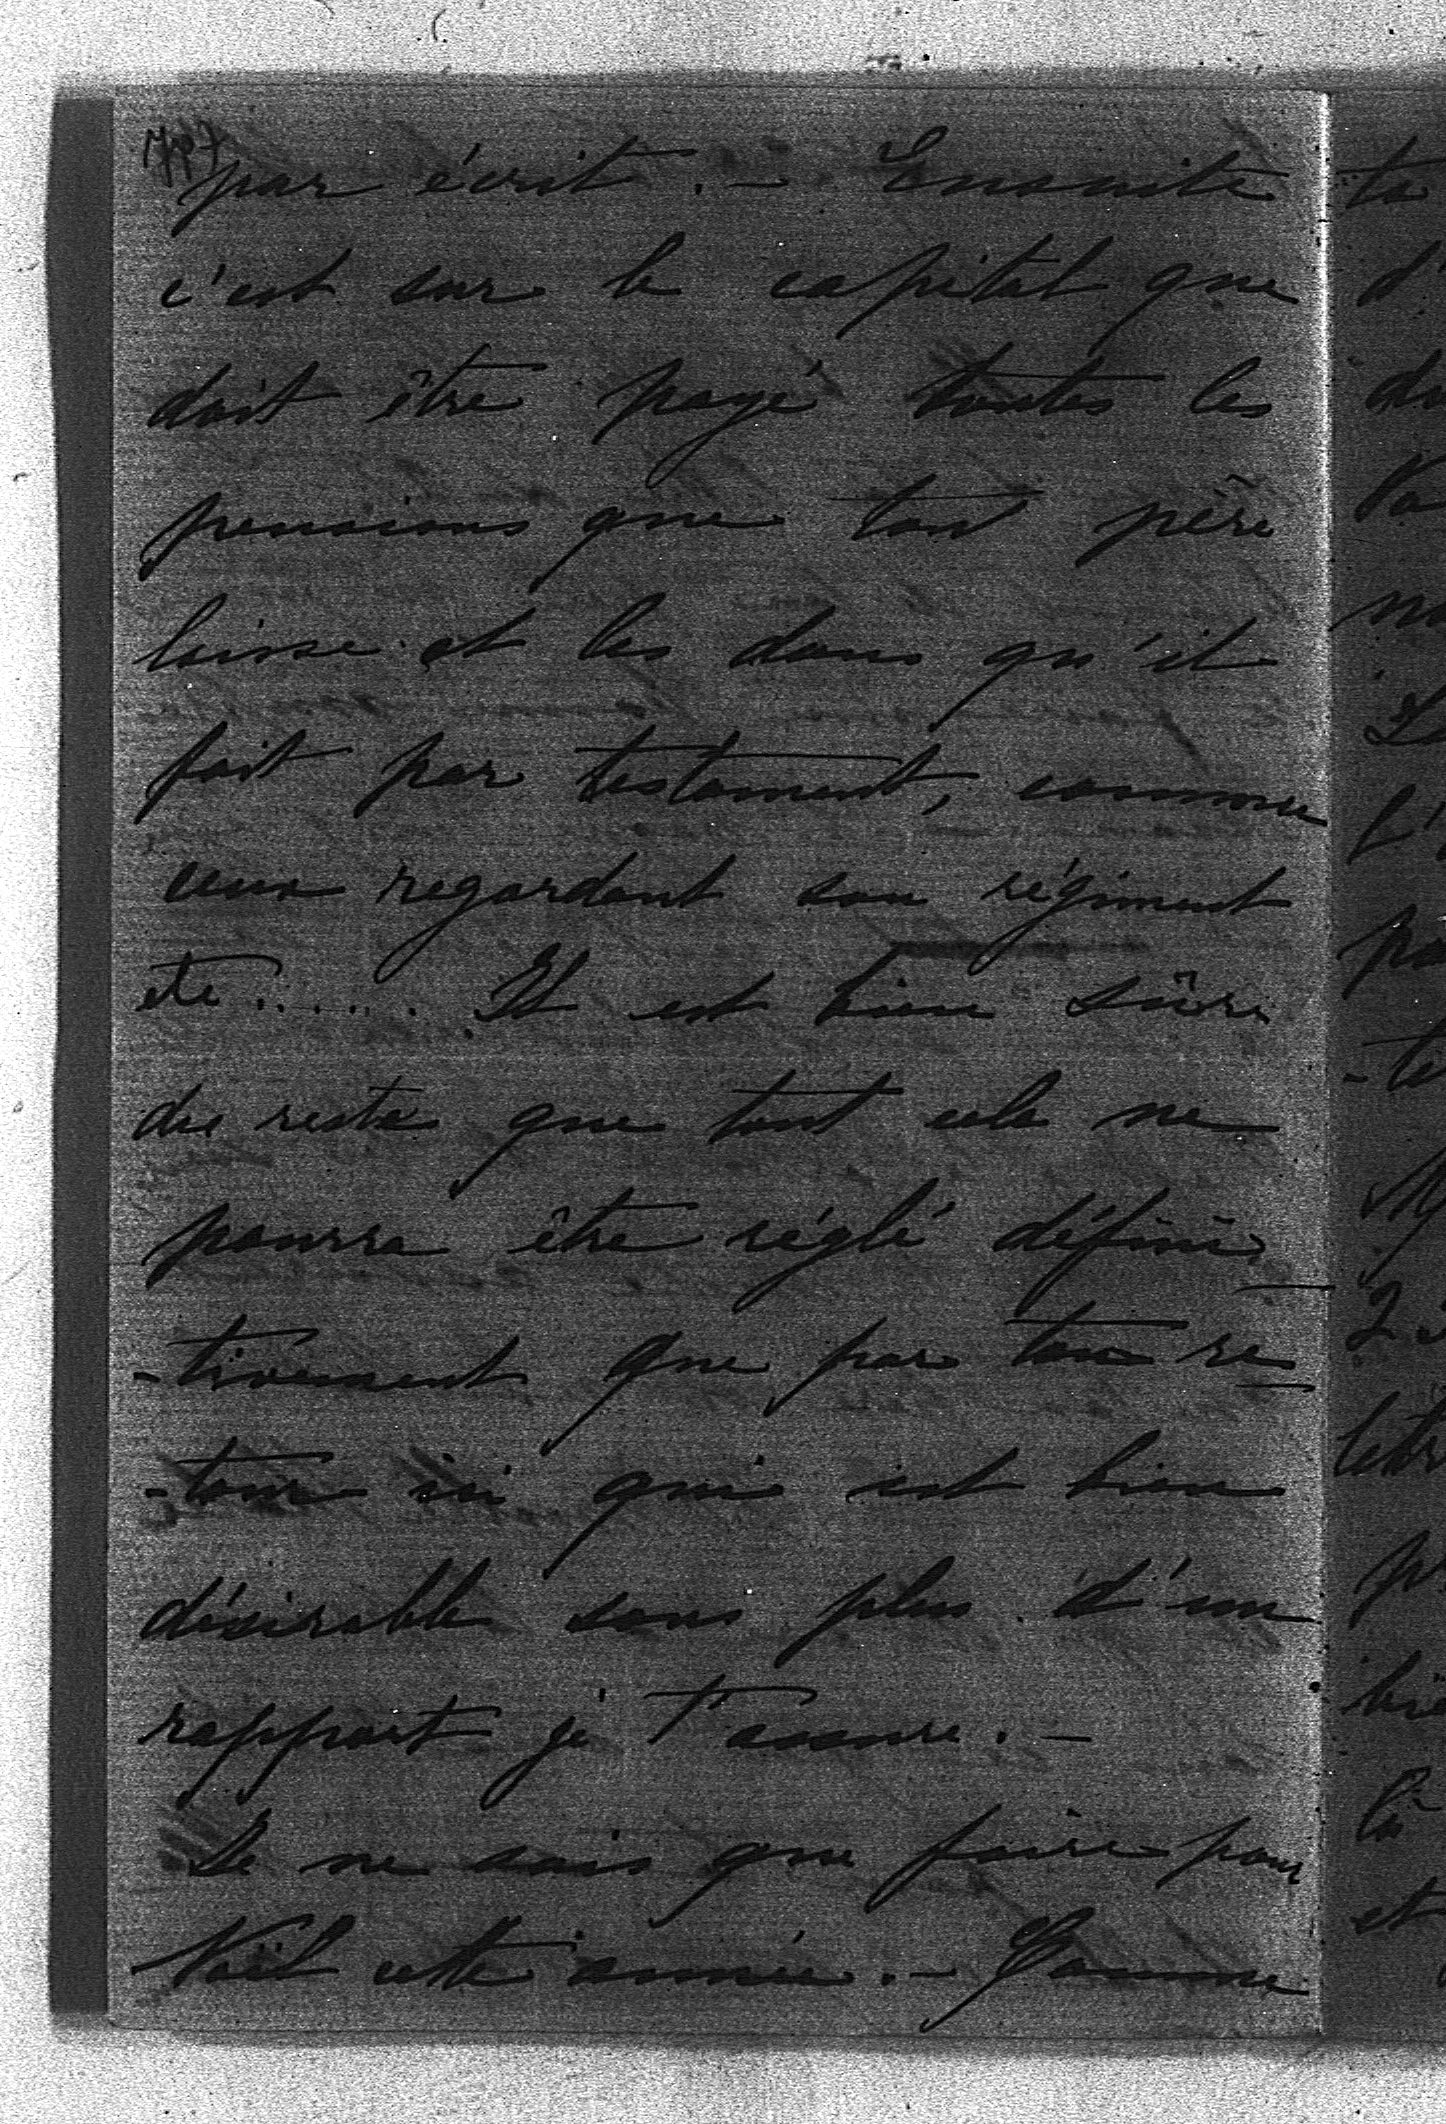 par écrit. — Ensuite
c'est sur le capital que
doit être payé toutes les
pensions que ton père
laisse et les dons qu'il
fait par testament, comme
ceux regardant son régiment
etc ...... Il est bien sûre
du reste que tout cela ne
pourra être réglé défini-
-tivement que par ton re-
-tour ici qui est bien
désirable sous plus d'un
rapport je t'assure. —
Je ne sais que faire pour
Noël cette année. — Comme